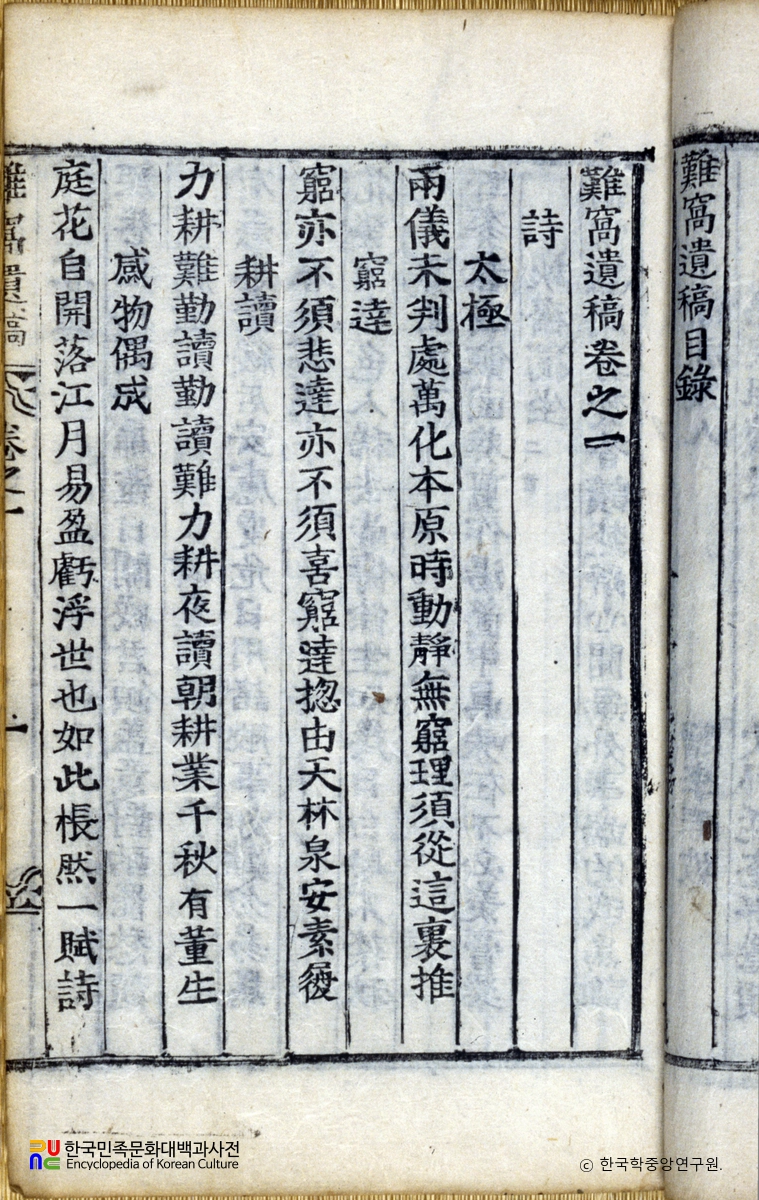 難窩遺稿目錄
難窩遺稿卷之一
詩
太極
兩儀未判處萬化本原時動靜無窮理須從這裏推
窮達
窮亦不須悲達亦不須喜窮達揔由天林泉安素履
耕讀
力耕難勤讀勤讀難力耕夜讀朝耕業千秋有董生
感物偶成
庭花自開落江月易盈虧浮世也如此悵然一賦詩
難窩遺稿 卷之一 一
한국민족문화대백과사전
Encyclopedia of Korean Culture
© 한국학중앙연구원.